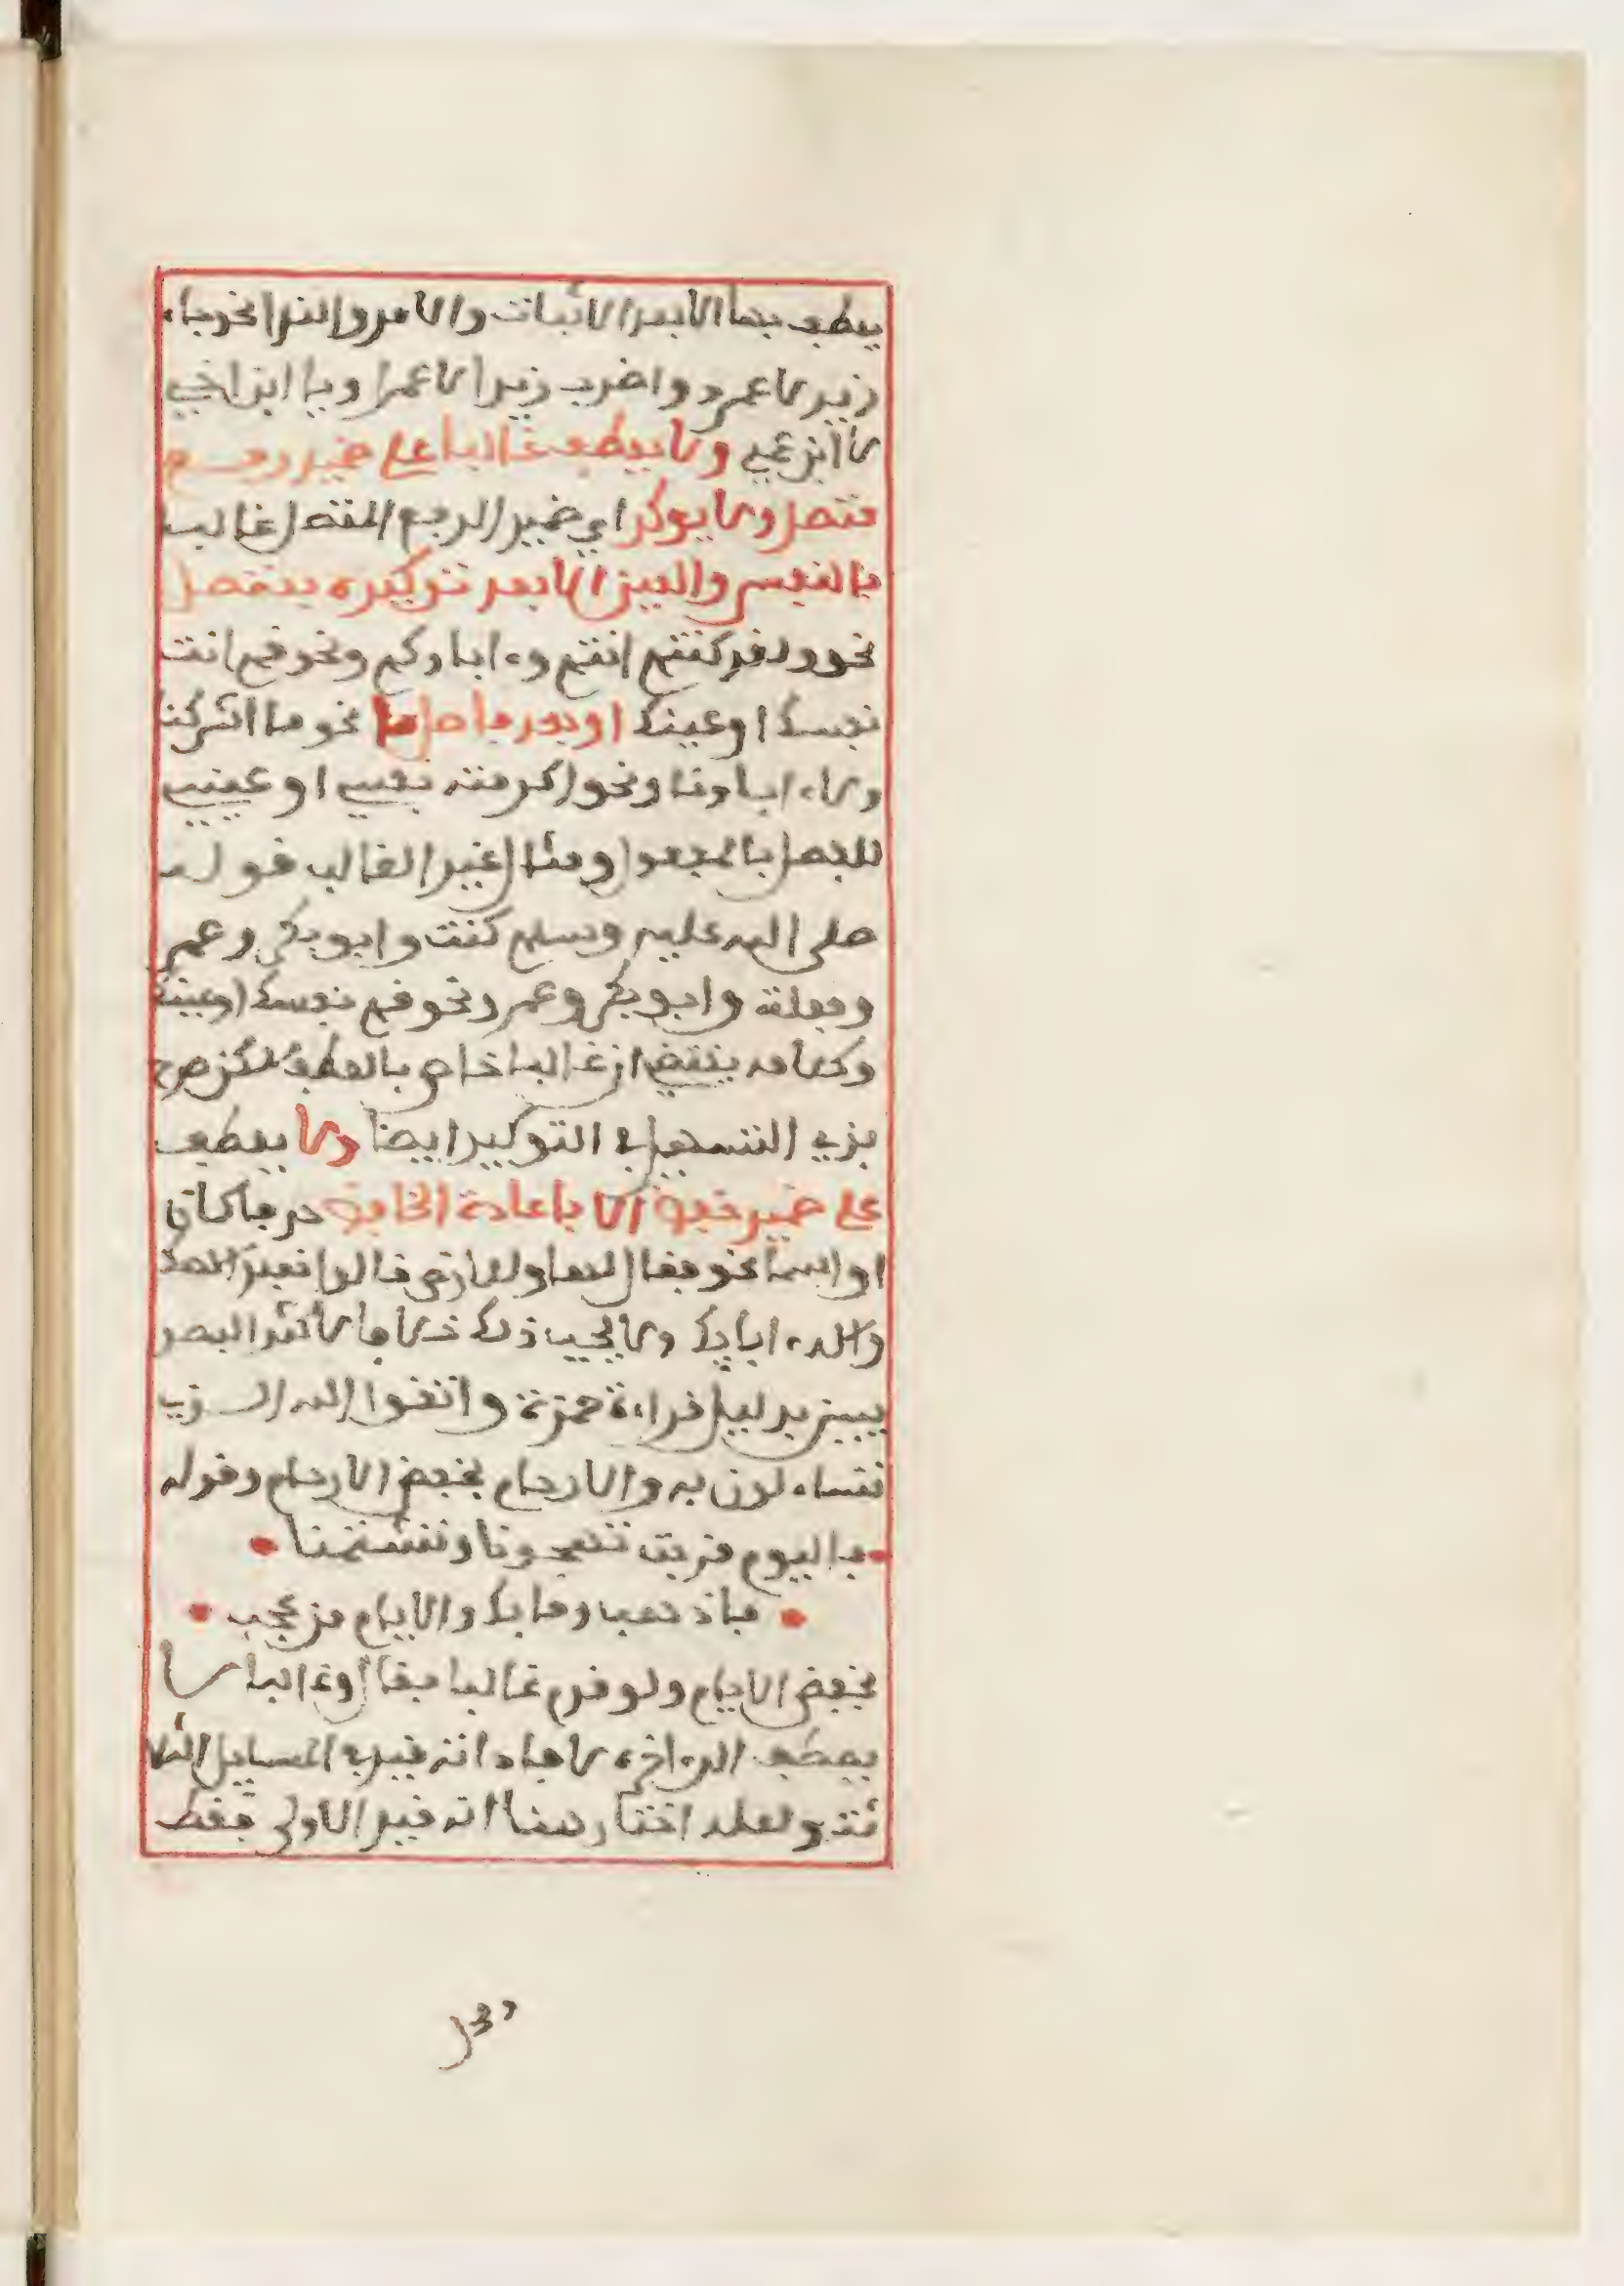 يعطف بها الا بعد الاثبات والامر والندا نحو جاء
زيد لا عمرو واضرب زيدا لا عمرا ويا ابن اخي
لا ابن عمي ولا يعطف غالبا على ضمير رفع
متصل ولا يوكد اي ضمير الرفع المتصل غالبا
بالنفس والعين الا بعد توكيده بمنفصل
نحو لقد كنتم انتم وءاباوكم ونحو قم انت
نفسك او عينك او بعد فاصل ما نحو ما اشركنا
ولا ءاباونا ونحو اكرمته نفسي او عيني
للفصل بالمفعول ومثال غير الغالب قوله
صلى الله عليه وسلم كنت وابو بكر وعمر
وفعلت وابو بكر وعمر ونحو قم نفسك او عينك
وكلامه يقتضي ان غالبا خاص بالعطف لكن صرح
في التسهيل في التوكيد ايضا ولا يعطف
على ضمير خفض الا باعادة الخافض حرفا كان
او اسما نحو فقال لها وللارض قالوا نعبد الهك
واله ءابايك ولا يجب ذلك خلافا لاكثر البصر
يين بدليل قراءة حمزة واتقوا الله الذي
تتساءلون به والارحام بخفض الارحام وقوله
فاليوم قربت تهجونا وتشتمنا
فاذهب وما بك والايام من عجب
بخفض الايام ولو قدم غالبا فقال وغالبا لا
يعطف الى ءاخره لافاد انه قيد في المسايل الثلا
ثة ولعله اختار هنا انه قيد الاولى فقط